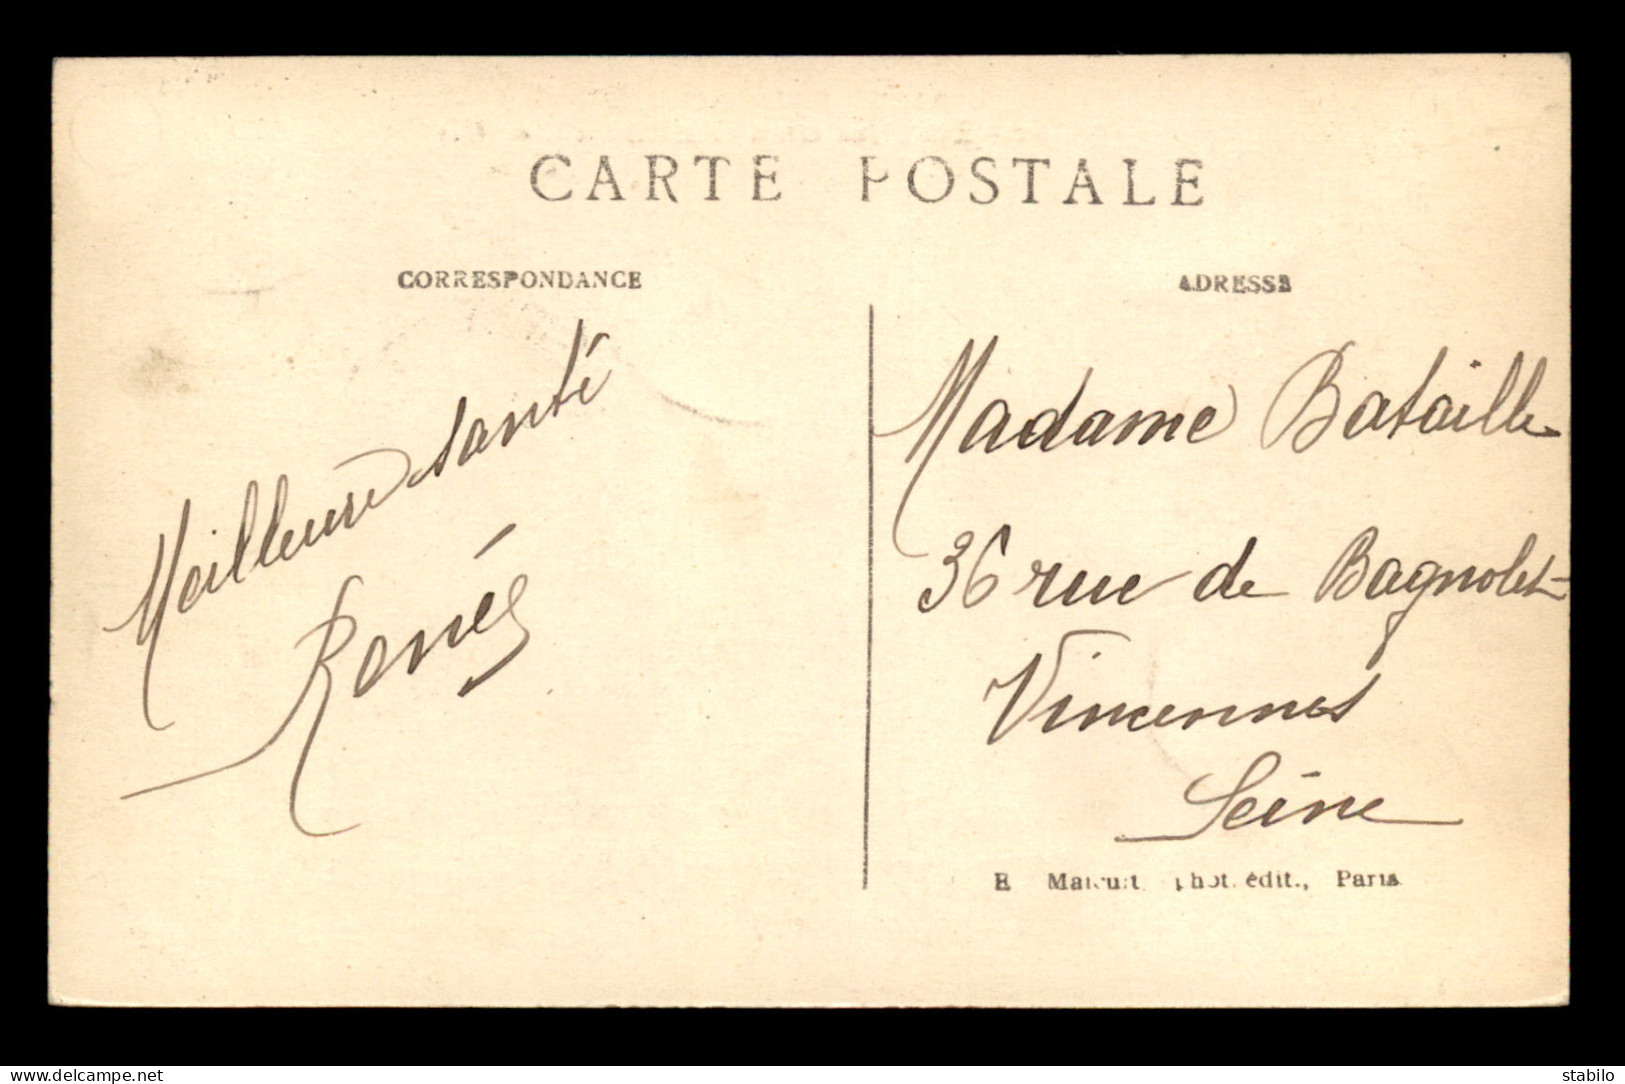 CARTE POSTALE
CORRESPONDANCE
ADRESSE
Meilleure santé
Renée
Madame Bataille
36 rue de Bagnolet
Vincennes
Seine
phot. édit., Paris
stabilo